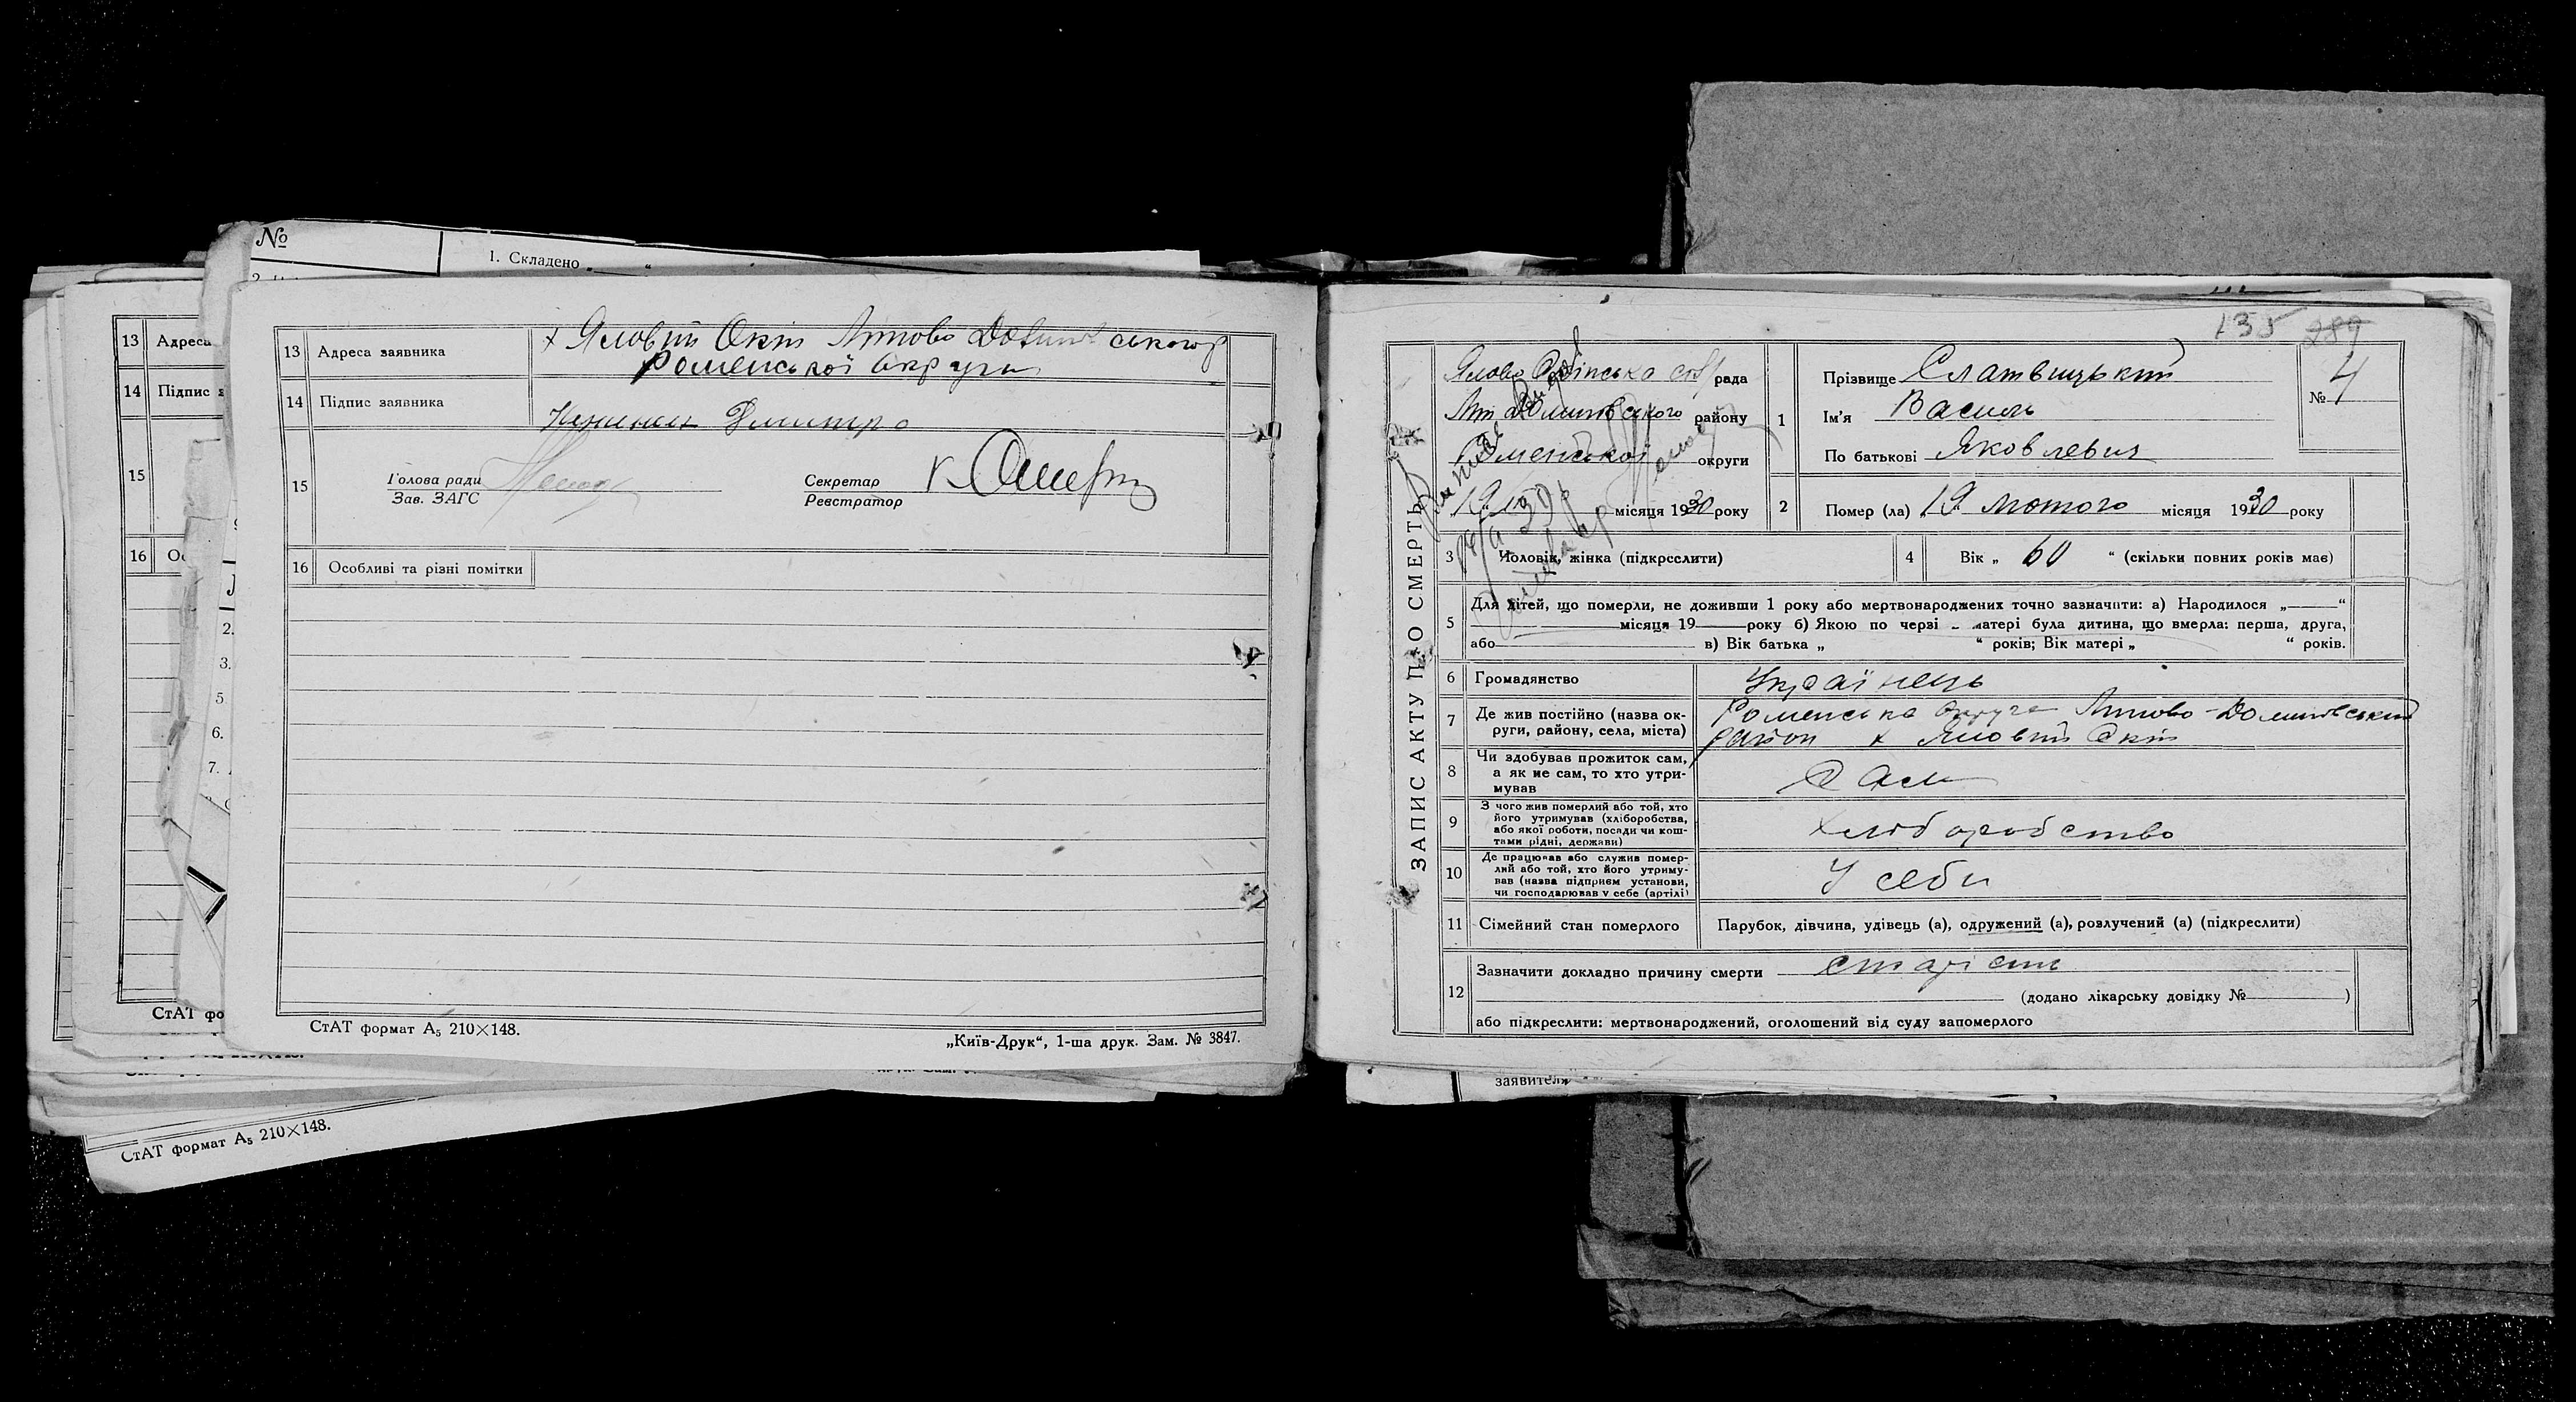 №
1. Складено „ “
13 Адреса
14 Підпис з
15
16
13 Адреса заявника х Яловий Окіп Липово Долинського р
Роменської округи
14 Підпис заявника
Дмитро
15 Голова ради
Зав. ЗАГС
Секретар
Реєстратор
16 Особливі та різні помітки
СтАТ формат А₅ 210×148.
„Київ-Друк“, 1-ша друк. Зам. № 3847.
2.
3.
5
6.
7.
СтАТ фо
СтАТ формат А₅ 210×148.
135 289
ЗАПИС АКТУ ПРО СМЕРТЬ
рада
району
округи
місяця 1930 року
1 Прізвище Слатвицький
Ім'я Василь
По батькові Яковлевич
№ 4
2 Помер (ла) „19 лютого місяця 1930 року
3 Чоловік, жінка (підкреслити)
4 Вік „ 60 “ (скільки повних років має)
5 Для дітей, що померли, не доживши 1 року або мертвонароджених точно зазначити: а) Народилося „ “
місяця 19 року б) Якою по черзі матері була дитина, що вмерла: перша, друга,
або в) Вік батька „ “ років; Вік матері „ “ років.
6 Громадянство Українець
7 Де жив постійно (назва ок-
руги, району, села, міста)
Роменська округа Липово-Долинський
район х Яловий Окіп
8 Чи здобував прожиток сам,
а як не сам, то хто утри-
мував
Сам
9 З чого жив померлий або той, хто
його утримував (хліборобства,
або якої роботи, посади чи кош-
тами рідні, держави)
Хліборобство
10 Де працював або служив помер-
лий або той, хто його утриму-
вав (назва підприєм установи,
чи господарював у себе (артілі)
У себи
11 Сімейний стан померлого Парубок, дівчина, удівець (а), одружений (а), розлучений (а) (підкреслити)
12 Зазначити докладно причину смерти старість
(додано лікарську довідку № )
або підкреслити: мертвонароджений, оголошений від суду запомерлого
заявителя